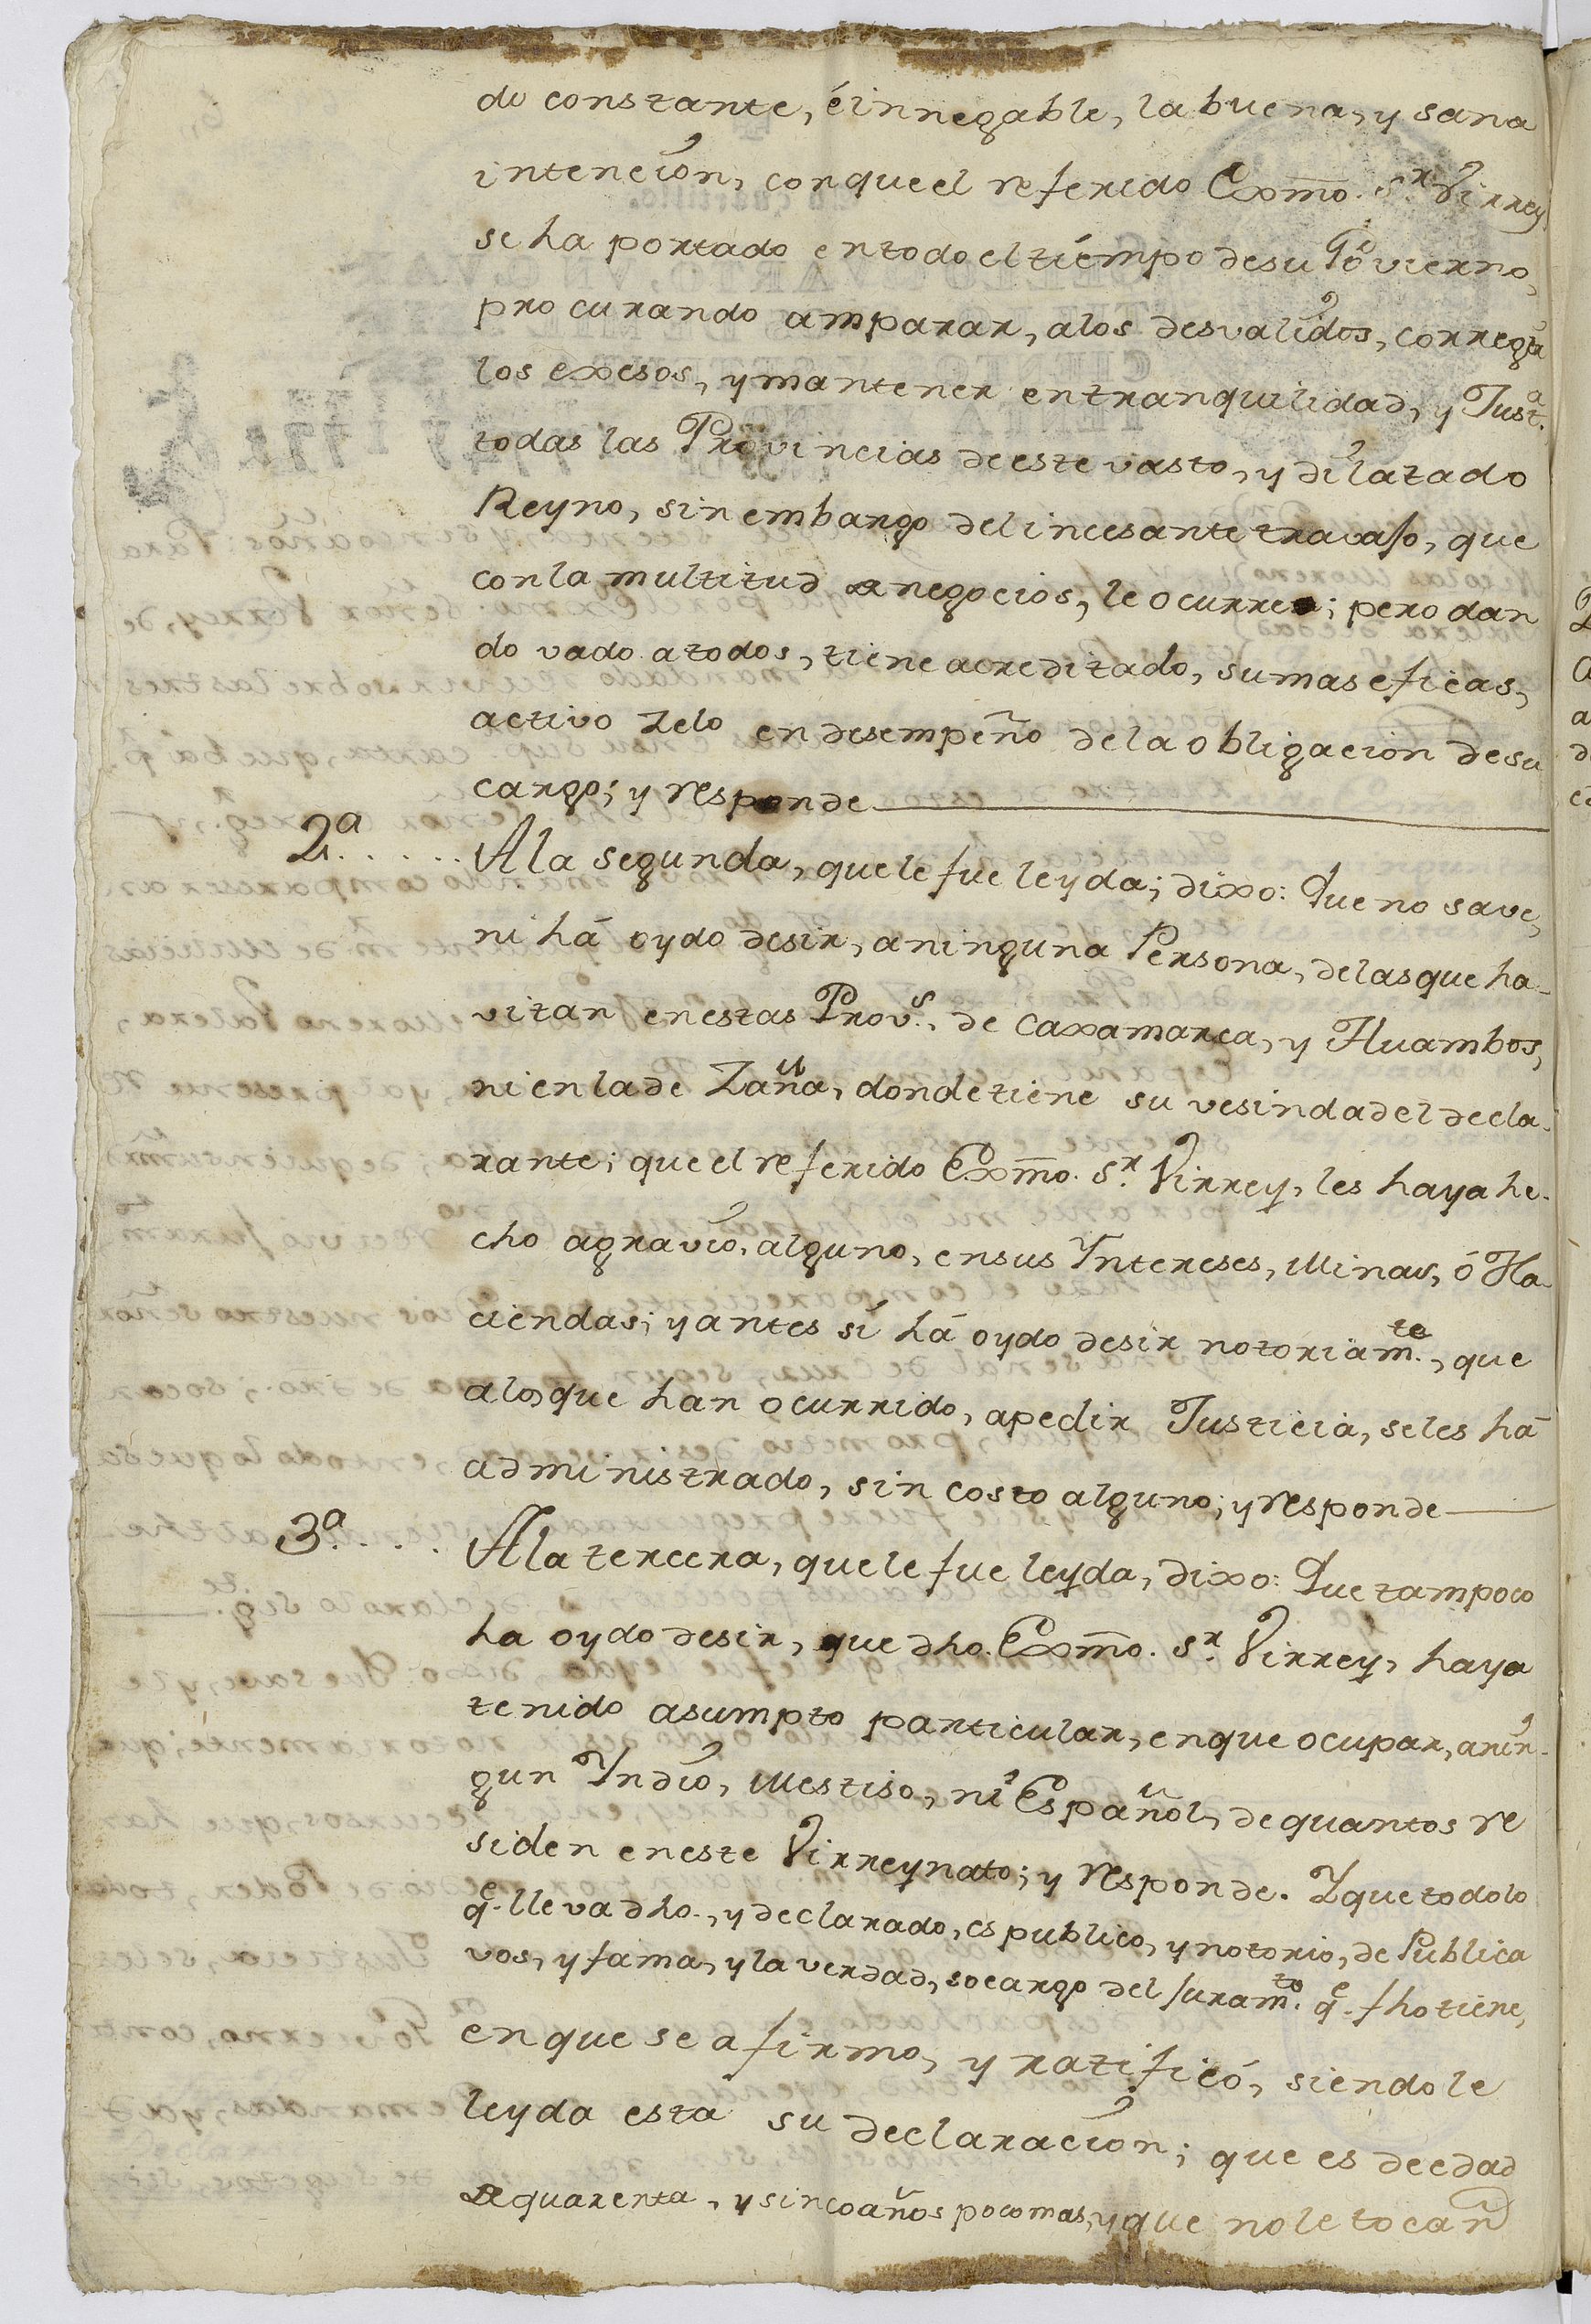 do constante, é innegable, la buena, y sana
intencion, conque el referido Exmo. Sr. Virrey
se ha portado entodo el tiempo desu Govierno,
procurando amparar, alos desvalidos, corregir
los exesos, y mantener entranquilidad, y Justa.
todas las Provincias de este vasto, y dilatado
Reyno, sin embargo del incesante travajo, que
con la multitud de negocios, le ocurre; pero dan
do vado atodos, tiene acreditado, su mas eficas,
activo zelo en desempeño dela obligacion desu
cargo; y responde
2a. . . . . . Ala segunda, que le fue leyda; dixo: Que no save,
ni há oydo desir, a ninguna Persona, delas que ha-
vitan enestas Provs. de Caxamarca, y Huambos,
ni en la de Zaña, donde tiene su vesindad el decla-
rante; que el referido Exmo. Sr. Virrey, les haya he-
cho agravio, alguno, ensus Yntereses, Minas, ó Ha-
ciendas; y antes sí há oydo desir notoriamte., que
alos que han ocurrido, apedir Justicia, seles há
administrado, sin costo alguno; y responde
3a. . . . . Ala tercera, que le fue leyda, dixo: Que tampoco
ha oydo desir, que dho. Exmo. Sr. Virrey, haya
tenido asumpto particular, enque ocupar, anin-
gun Yndio, Mestiso, ni Español, de quantos re
siden eneste Virreynato; y responde. Y que todo lo
qe. lleva dho., y declarado, es publico, y notorio, de Publica
vos, y fama, y la verdad, so cargo del juramto. qe. fho tiene,
enque se afirmo, y ratificó, siendole
leyda esta su declaracion; que es de edad
de quarenta, y sinco años poco mas, y que no le tocan